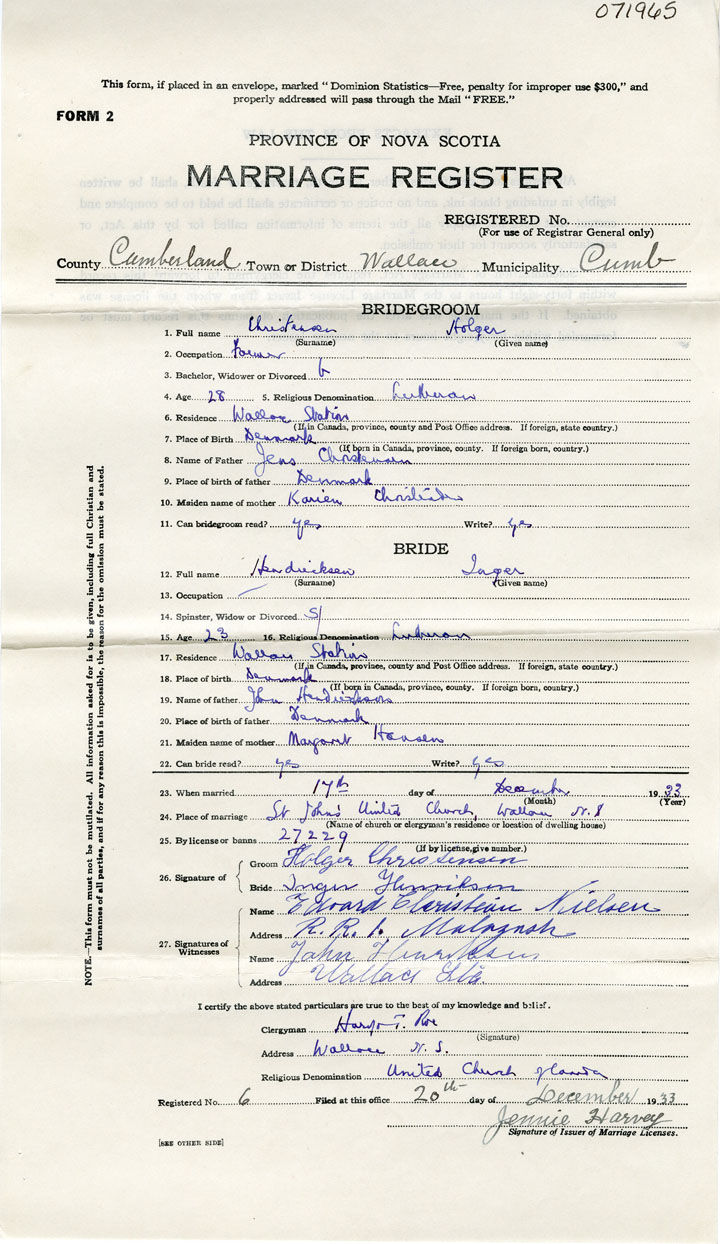 071965
This form, if placed in an envelope, marked "Dominion Statistics—Free, penalty for improper use $300," and
properly addressed will pass through the Mail "FREE."
FORM 2
PROVINCE OF NOVA SCOTIA
MARRIAGE REGISTER
REGISTERED No.
(For use of Registrar General only)
County Cumberland Town or District Wallace Municipality Cumb
BRIDEGROOM
1. Full name Christensen Holger
(Surname) (Given name)
2. Occupation Farmer
3. Bachelor, Widower or Divorced b
4. Age 28 5. Religious Denomination Lutheran
6. Residence Wallace Station
(If in Canada, province, county and Post Office address. If foreign, state country.)
7. Place of Birth Denmark
(If born in Canada, province, county. If foreign born, country.)
8. Name of Father Jens Christensen
9. Place of birth of father Denmark
10. Maiden name of mother Karien
11. Can bridegroom read? yes Write? yes
BRIDE
12. Full name Hendricksen Inger
(Surname) (Given name)
13. Occupation
14. Spinster, Widow or Divorced S
15. Age 23 16. Religious Denomination Lutheran
17. Residence Wallace Station
(If in Canada, province, county and Post Office address. If foreign, state country.)
18. Place of birth Denmark
(If born in Canada, province, county. If foreign born, country.)
19. Name of father John
20. Place of birth of father Denmark
21. Maiden name of mother Margaret Hansen
22. Can bride read? yes Write? yes
23. When married 17th day of December 1933
(Month) (Year)
24. Place of marriage St John's United Church, Wallace N.S
(Name of church or clergyman's residence or location of dwelling house)
25. By license or banns 27229
(If by license, give number.)
26. Signature of
Groom Holger Christensen
Bride Inger Henriksen
27. Signatures of Witnesses
Name Edward Christian Nielsen
Address R. R. 1. Malagash
Name John
Address Wallace Sta.
I certify the above stated particulars are true to the best of my knowledge and belief.
Clergyman T. Roe
(Signature)
Address Wallace N. S.
Religious Denomination United Church of Canada
Registered No. 6 Filed at this office 20th day of December 1933
Jennie Harvey
Signature of Issuer of Marriage Licenses.
[SEE OTHER SIDE]
NOTE.—This form must not be mutilated. All information asked for is to be given, including full Christian and
surnames of all parties, and if for any reason this is impossible, the reason for the omission must be stated.